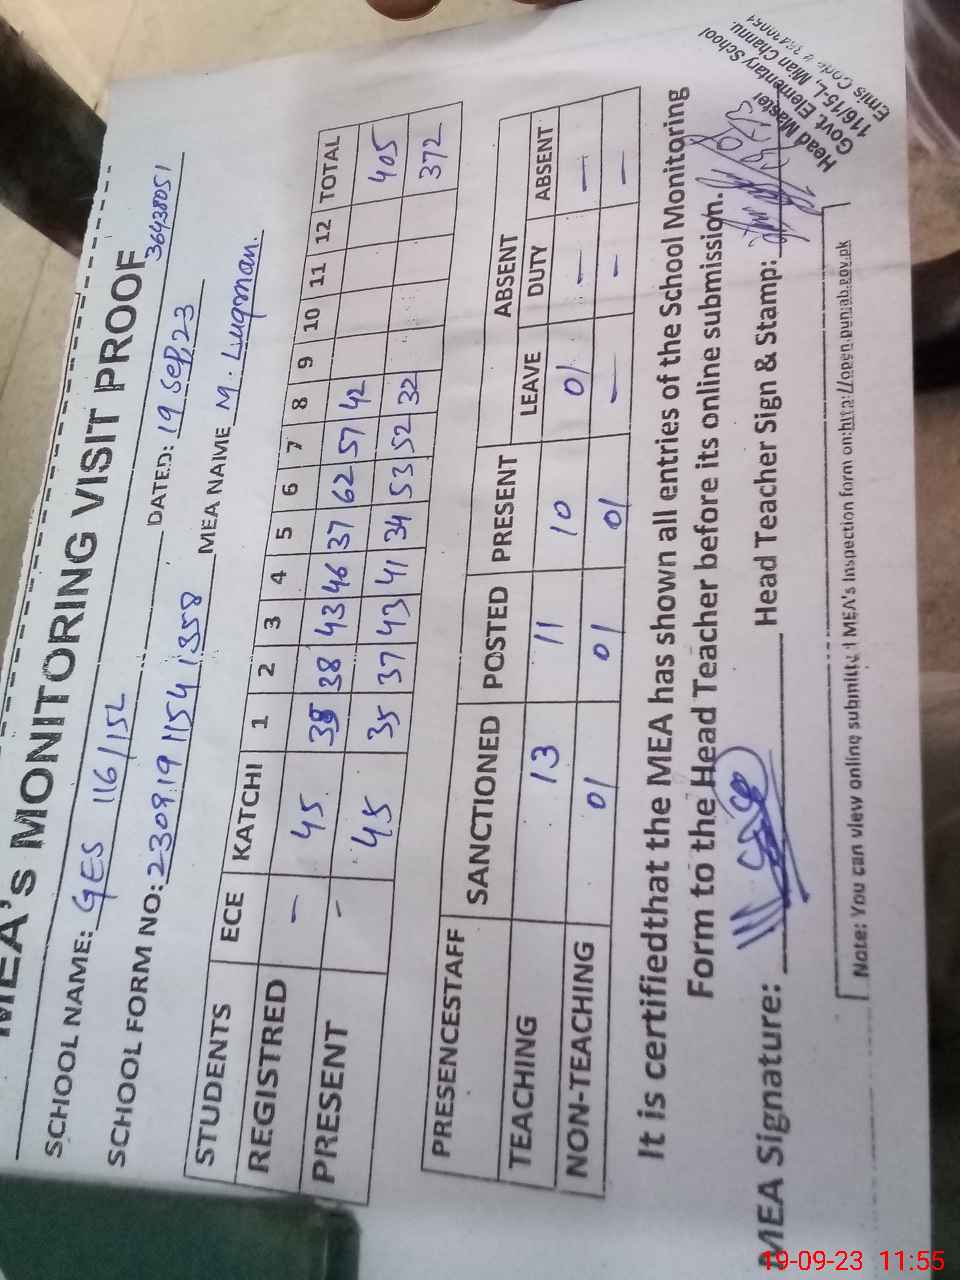 MEA's MONITORING VISIT PROOF
36438051
SCHOOL NAME: GES 116/15L DATED: 19 Sep, 23
SCHOOL FORM NO: 230919 1154 1358 MEA NAME M. Luqman.
STUDENTS ECE KATCHI 1 2 3 4 5 6 7 8 9 10 11 12 TOTAL
REGISTRED - 45 35 38 43 46 37 62 57 42 405
PRESENT - 45 35 37 43 41 34 53 52 32 372
PRESENCESTAFF SANCTIONED POSTED PRESENT ABSENT
LEAVE DUTY ABSENT
TEACHING 13 11 10 01 - -
NON-TEACHING 01 01 01 - - -
It is certifiedthat the MEA has shown all entries of the School Monitoring
Form to the Head Teacher before its online submission.
MEA Signature: Head Teacher Sign & Stamp:
Head Master
Govt. Elementary School
116/15-L, Mian Channu.
Emis Code #
Note: You can view online submitted MEA's Inspection form on:http://open.punjab.gov.pk
19-09-23 11:55